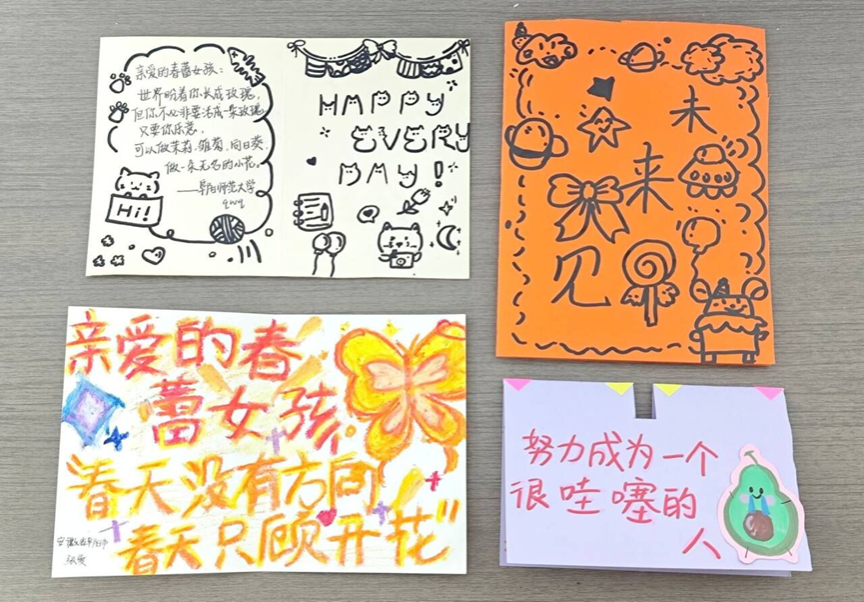 亲爱的春蕾女孩：
世界盼着你长成玫瑰，
但你不必非要活成一朵玫瑰
只要你乐意，
可以做茉莉、雏菊、向日葵，
做一朵无名的小花。
——阜阳师范大学
Hi!
HAPPY
EVERY
DAY!
未
来
见
亲爱的春
蕾女孩：
"春天没有方向
春天只顾开花"
努力成为一个
很哇塞的
人